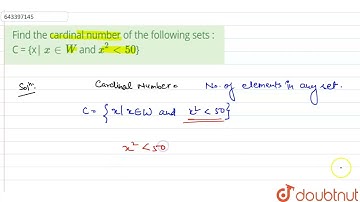 643397145
Find the cardinal number of the following sets :
C = {x| x ∈ W and x² < 50}
Solⁿ: Cardinal Number = No. of elements in any set.
C = {x | x ∈ W and x² < 50}
x² < 50
doubtnut